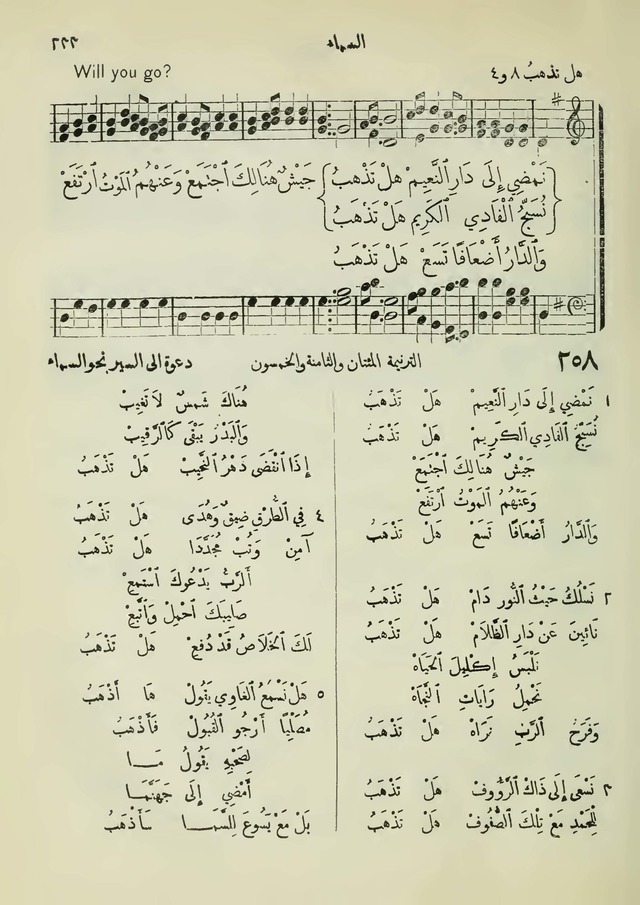 السماء ٢٢٣
هل تذهبُ ٨ و٤ Will you go?
نَمْضِي إِلَى دَارِ ٱلنَّعِيمْ هَلْ تَذْهَبُ جَيْشٌ هُنَالِكَ ٱجْتَمَعْ وَعَنْهُمُ ٱلمَوْتُ ٱرْتَفَعْ
نُسَبِّحُ ٱلْفَادِي ٱلكَرِيمْ هَلْ تَذْهَبُ
وَٱلدَّارُ أَضْعَافًا تَسَعْ هَلْ تَذْهَبُ
٢٥٨ الترنيمة المئتان والثامنة والخمسون دعوة الى السير نحو السماء
١ نَمْضِي إِلَى دَارِ ٱلنَّعِيمْ هَلْ تَذْهَبُ
نُسَبِّحُ ٱلْفَادِي ٱلكَرِيمْ هَلْ تَذْهَبُ
جَيْشٌ هُنَالِكَ ٱجْتَمَعْ
وَعَنْهُمُ ٱلمَوْتُ ٱرْتَفَعْ
وَٱلدَّارُ أَضْعَافًا تَسَعْ هَلْ تَذْهَبُ
٢ نَسْلُكُ حَيْثُ ٱلنُّورُ دَامْ هَلْ تَذْهَبُ
نَائِينَ عَنْ دَارِ ٱلظَّلَامْ هَلْ تَذْهَبُ
نَلْبَسُ إِكْلِيلَ ٱلحَيَاهْ
نَحْمِلُ رَايَاتِ ٱلنَّجَاهْ
وَفَرَحُ ٱلرَّبِّ نَرَاهْ هَلْ تَذْهَبُ
٣ نَسْعَى إِلَى ذَاكَ ٱلرَّؤُوفْ هَلْ تَذْهَبُ
لِلْحَمْدِ مَعْ تِلْكَ ٱلصُّفُوفْ هَلْ تَذْهَبُ
هُنَاكَ شَمْسٌ لاَ تَغِيبْ
وَٱلبَدْرُ يَبْقَى كَٱلرَّقِيبْ
إِذَا ٱنْقَضَى دَهْرُ ٱلنَّحِيبْ هَلْ تَذْهَبُ
٤ فِي ٱلطَّرْقِ ضِيقٌ وَهُدَى هَلْ تَذْهَبُ
آمِنْ وَتُبْ مُجَدَّدَا هَلْ تَذْهَبُ
أَلرَّبُّ يَدْعُوكَ ٱسْتَمِعْ
صَلِيبَكَ ٱحْمِلْ وَٱتَّبِعْ
لَكَ ٱلخَلاَصُ قَدْ دُفِعْ هَلْ تَذْهَبُ
٥ هَلْ نَسْمَعُ ٱلغَاوِي يَقُولْ هَا أَذْهَبُ
مُصَلِّيًا أَرْجُو ٱلقُبُولْ فَأَذْهَبُ
لِصَحْبِهِ يَقُولُ مَا
أَمْضِي إِلَى جَهَنَّمَا
بَلْ مَعْ يَسُوعَ لِلسَّمَا سَأَذْهَبُ